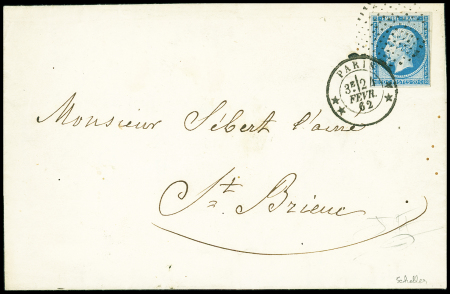 PARIS
3E 2
FÉVR.
62
Monsieur Sébert l'ainé
St. Brieuc
Scheller